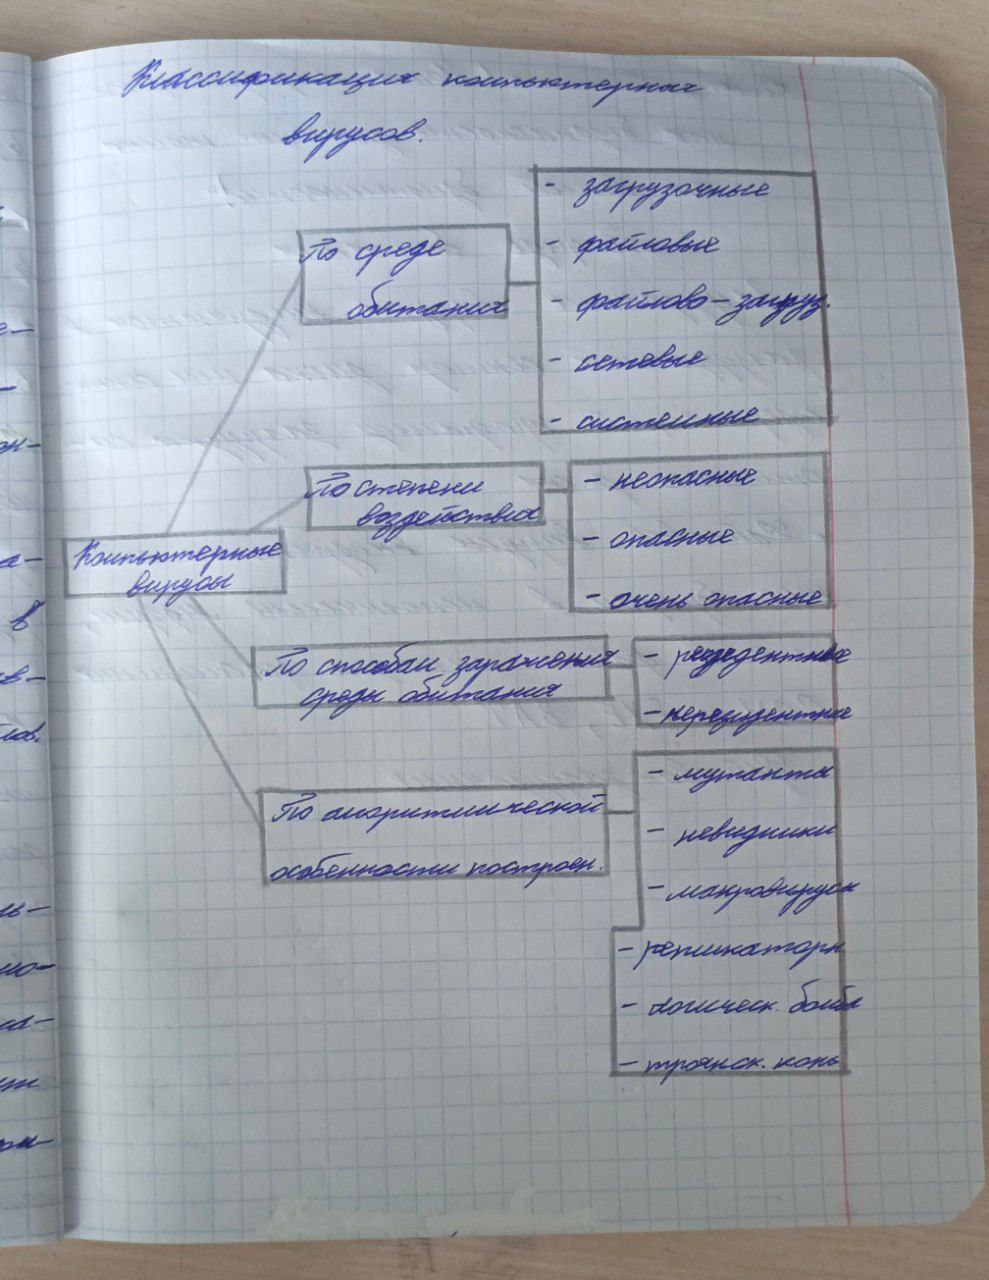 Классификация компьютерных
вирусов.
По среде
обитания
- загрузочные
- файловые
- файлово-загруз.
- сетевые
- системные
По степени
воздействия
- неопасные
- опасные
- очень опасные
Компьютерные
вирусы
По способам заражения
среды обитания
- резидентные
- нерезидентные
По алгоритмической
особенности построен.
- мутанты
- невидимки
- макровирусы
- репликаторы
- логическ. бомбы
- троянск. конь
е-
-
он-
а-
в
в-
лов.
ль-
мо-
на-
ят
он-